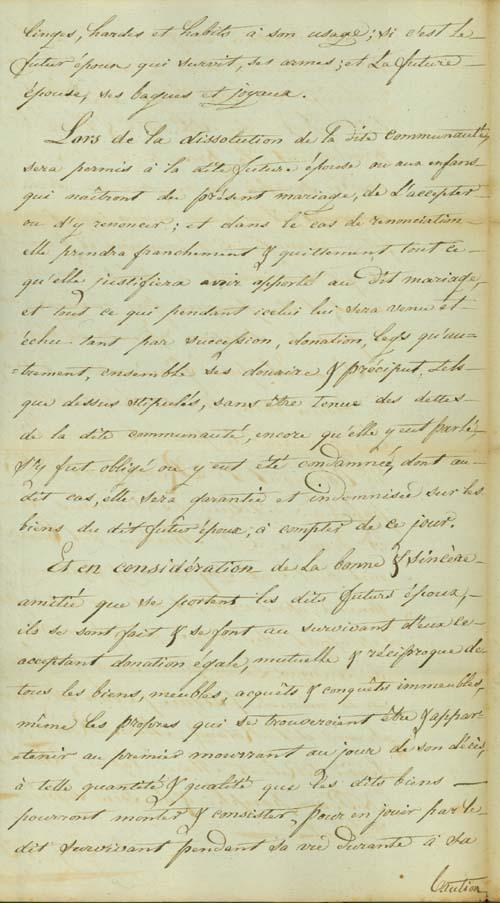 linges, hardes et habits à son usage; si c'est le
futur époux qui survit, ses armes; et la future
épouse, ses bagues et joyaux.
Lors de la dissolution de la dite communauté,
sera permis à la dite future épouse ou aux enfans
qui naîtront du présent mariage, de l'accepter
ou d'y renoncer; et dans le cas de renonciation
elle prendra franchement & quittement tout ce
qu'elle justifiera avoir apporté au dit mariage,
et tout ce qui pendant icelui lui sera venu et
échu tant par succession, donation, legs qu'au=
=trement, ensemble ses douaire & préciput, tels
que dessus stipulés, sans être tenue des dettes
de la dite communauté, encore qu'elle y eut parlé,
s'y fut obligé ou y eut été condamnée, dont au
dit cas, elle sera garantie et indemnisée sur les
biens du dit futur époux, à compter de ce jour.
Et en considération de la bonne & sincère
amitié que se portent les dits futurs époux,
ils se sont fait & se font au survivant d'eux ce
acceptant donation égale, mutuelle & réciproque de
tous les biens, meubles, acquêts & conquêts immeubles,
même les propres qui se trouveroient être & appar
tenir au premier mourrant au jour de son décès,
à telle quantité & qualité que les dits biens
pourront monter & consister, pour en jouir par le
dit survivant pendant sa vie durante à sa
Caution